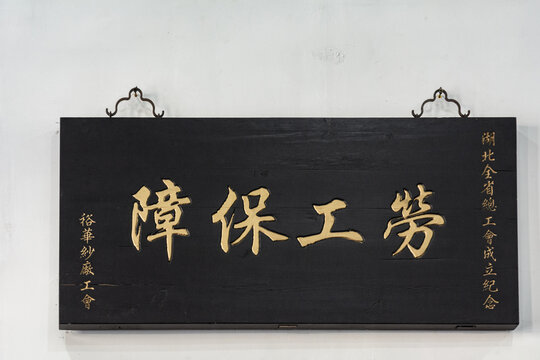 湖北全省總工會成立紀念
勞工保障
裕華紗廠工會